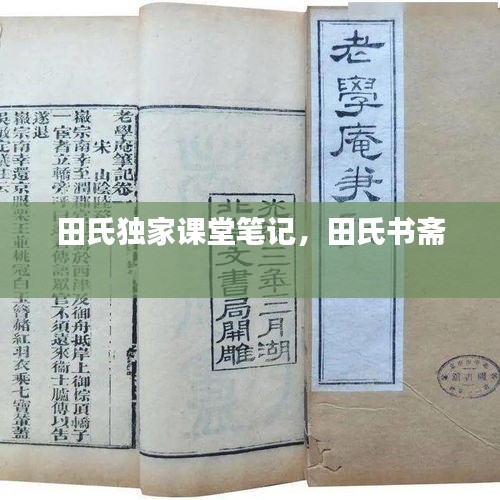 田氏独家课堂笔记，田氏书斋
老學庵筆
三年三月湖
北
文書局開雕
老學庵筆記卷一
宋 山陰陸
徽宗南幸還至潤郡
西津及御舟抵岸上御棕頂轎子
一宦者立轎旁
傳語眾官不須遠來衛士臚傳以告
遂退
徽宗南幸還京服
玉並桃冠白玉簪赭紅羽衣乘七寶輦蓋